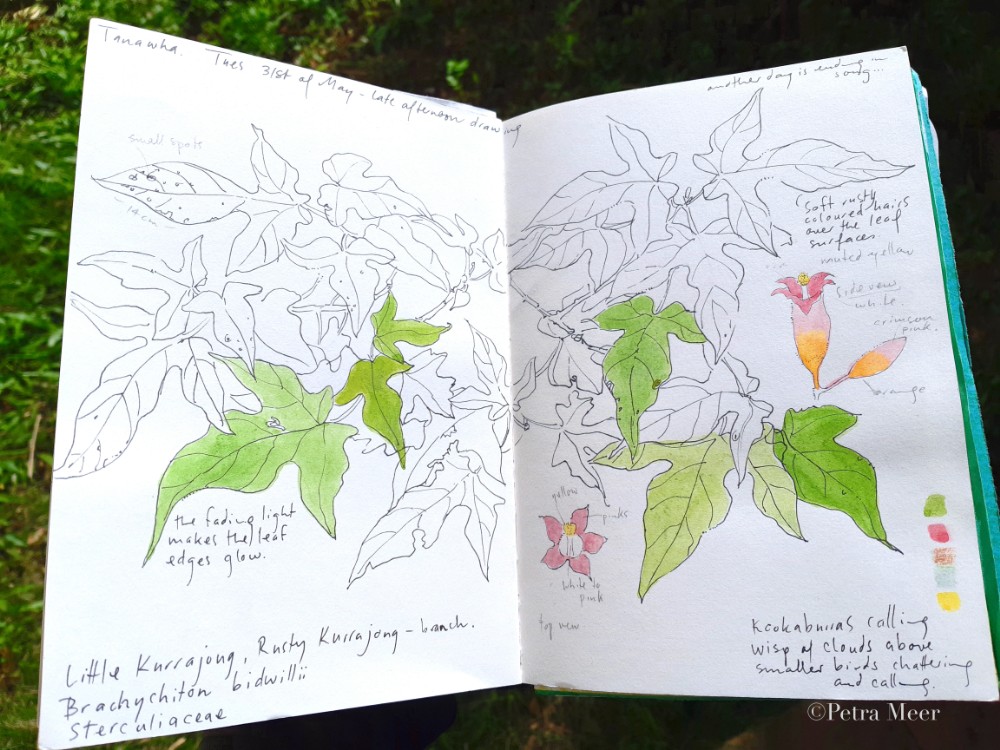 Tanawha. Tues 31st of May - late afternoon drawing
small spots
14cm
the fading light
makes the leaf
edges glow.
Little Kurrajong, Rusty Kurrajong - branch.
Brachychiton bidwillii
Sterculiaceae
another day is ending in
song...
soft rusty
coloured hairs
over the leaf
surfaces.
muted yellow
side view
white.
crimson
pink.
orange
yellow
pinks
white to
pink
top view
Kookaburras calling
wisp of clouds above
smaller birds chattering
and calling.
©Petra Meer